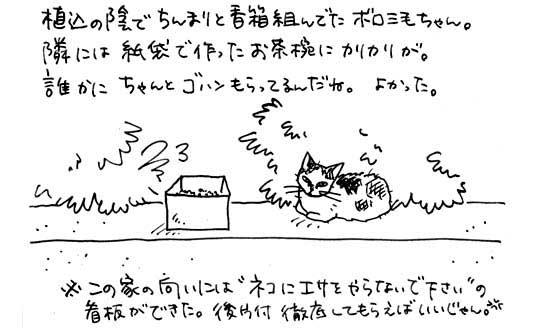 植込の陰でちんまりと香箱組んでたボロミモちゃん。
隣には紙袋で作ったお茶碗にカリカリが。
誰かにちゃんとゴハンもらってるんだね。よかった。
※この家の向いには"ネコにエサをやらないで下さい"の
看板ができた。後片付徹底してもらえばいいじゃん。※